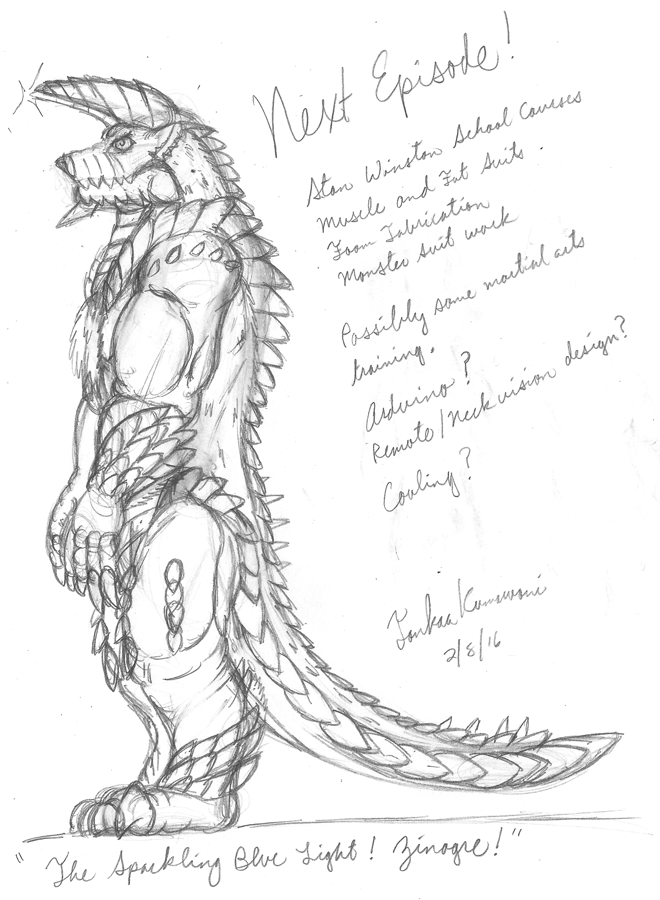 Next Episode!
Stan Winston School Courses
Muscle and Fat Suits.
Foam Fabrication
Monster suit work
Possibly some martial arts
training.
Arduino?
Remote/neck vision design?
Cooling?
2/8/16
"The Sparkling Blue Light! Zinogre!"